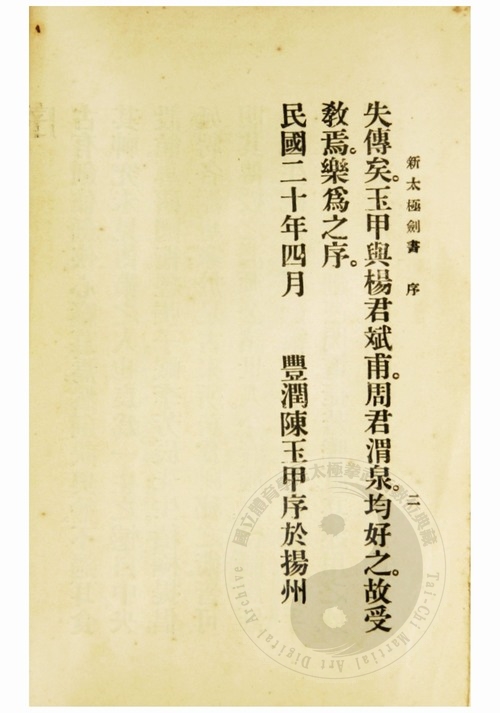 新太極劍書 序 二
失傳矣。玉甲與楊君斌甫。周君渭泉。均好之。故受
教焉。樂爲之序。
民國二十年四月 豐潤陳玉甲序於揚州
Tai-Chi Martial Art Digital Archive